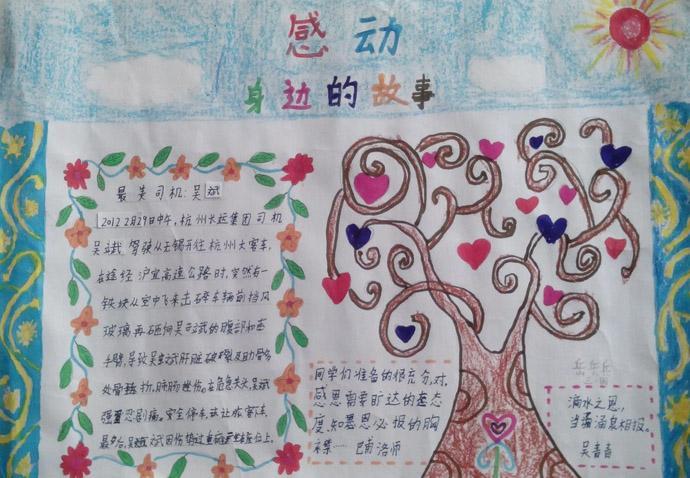 感动
身边的故事
最美司机:吴斌
2012 2月29日中午,杭州长运集团司机
吴斌 驾驶从无锡开往杭州大客车,
在途经 沪宜高速公路时,突然有一
铁块从空中飞来击碎车辆前挡风
玻璃再砸向吴斌的腹部和
手臂,导致吴斌肝脏破裂及肋骨多
处骨折,肺肠挫伤。在危急关头,吴斌
强忍剧痛。安全停车,让旅客下车,
最多后,吴斌因伤势过重
同学们准备的很充分,对,
感恩需要旷达的态
度,知恩必报的胸
襟……
滴水之恩,
当涌泉相报。
吴春春